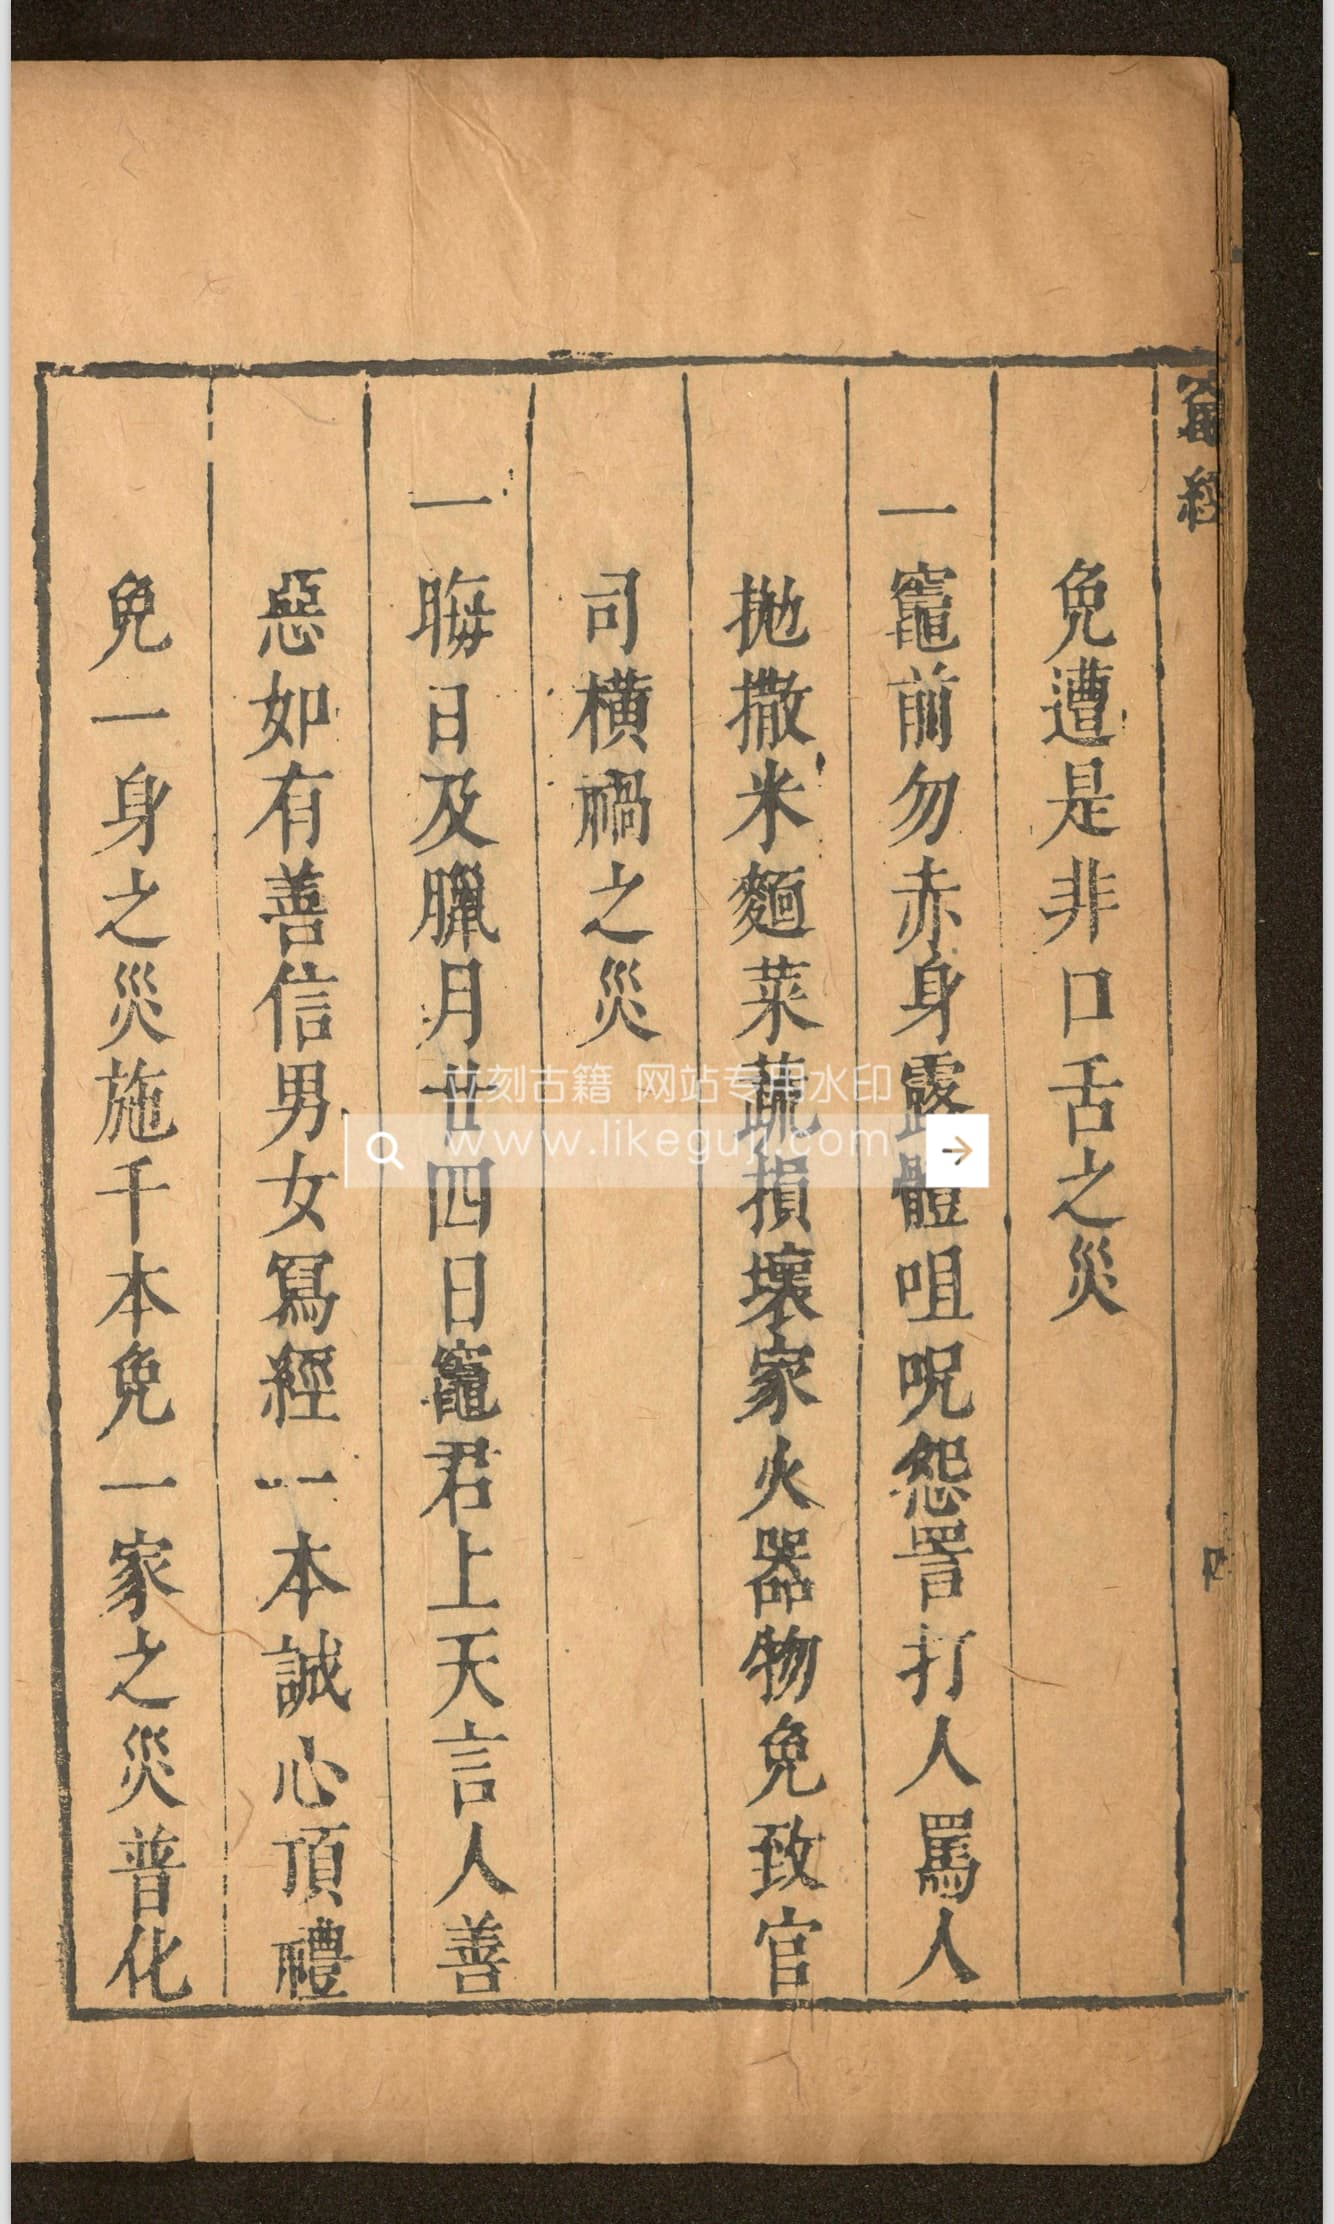 竈經
四
免遭是非口舌之災
一竈前勿赤身露體咀呪怨詈打人罵人
拋撒米麵菜蔬損壞家火器物免致官
司橫禍之災
一晦日及臘月廿四日竈君上天言人善
惡如有善信男女寫經一本誠心頂禮
免一身之災施千本免一家之災普化
立刻古籍 网站专用水印
www.likeguji.com